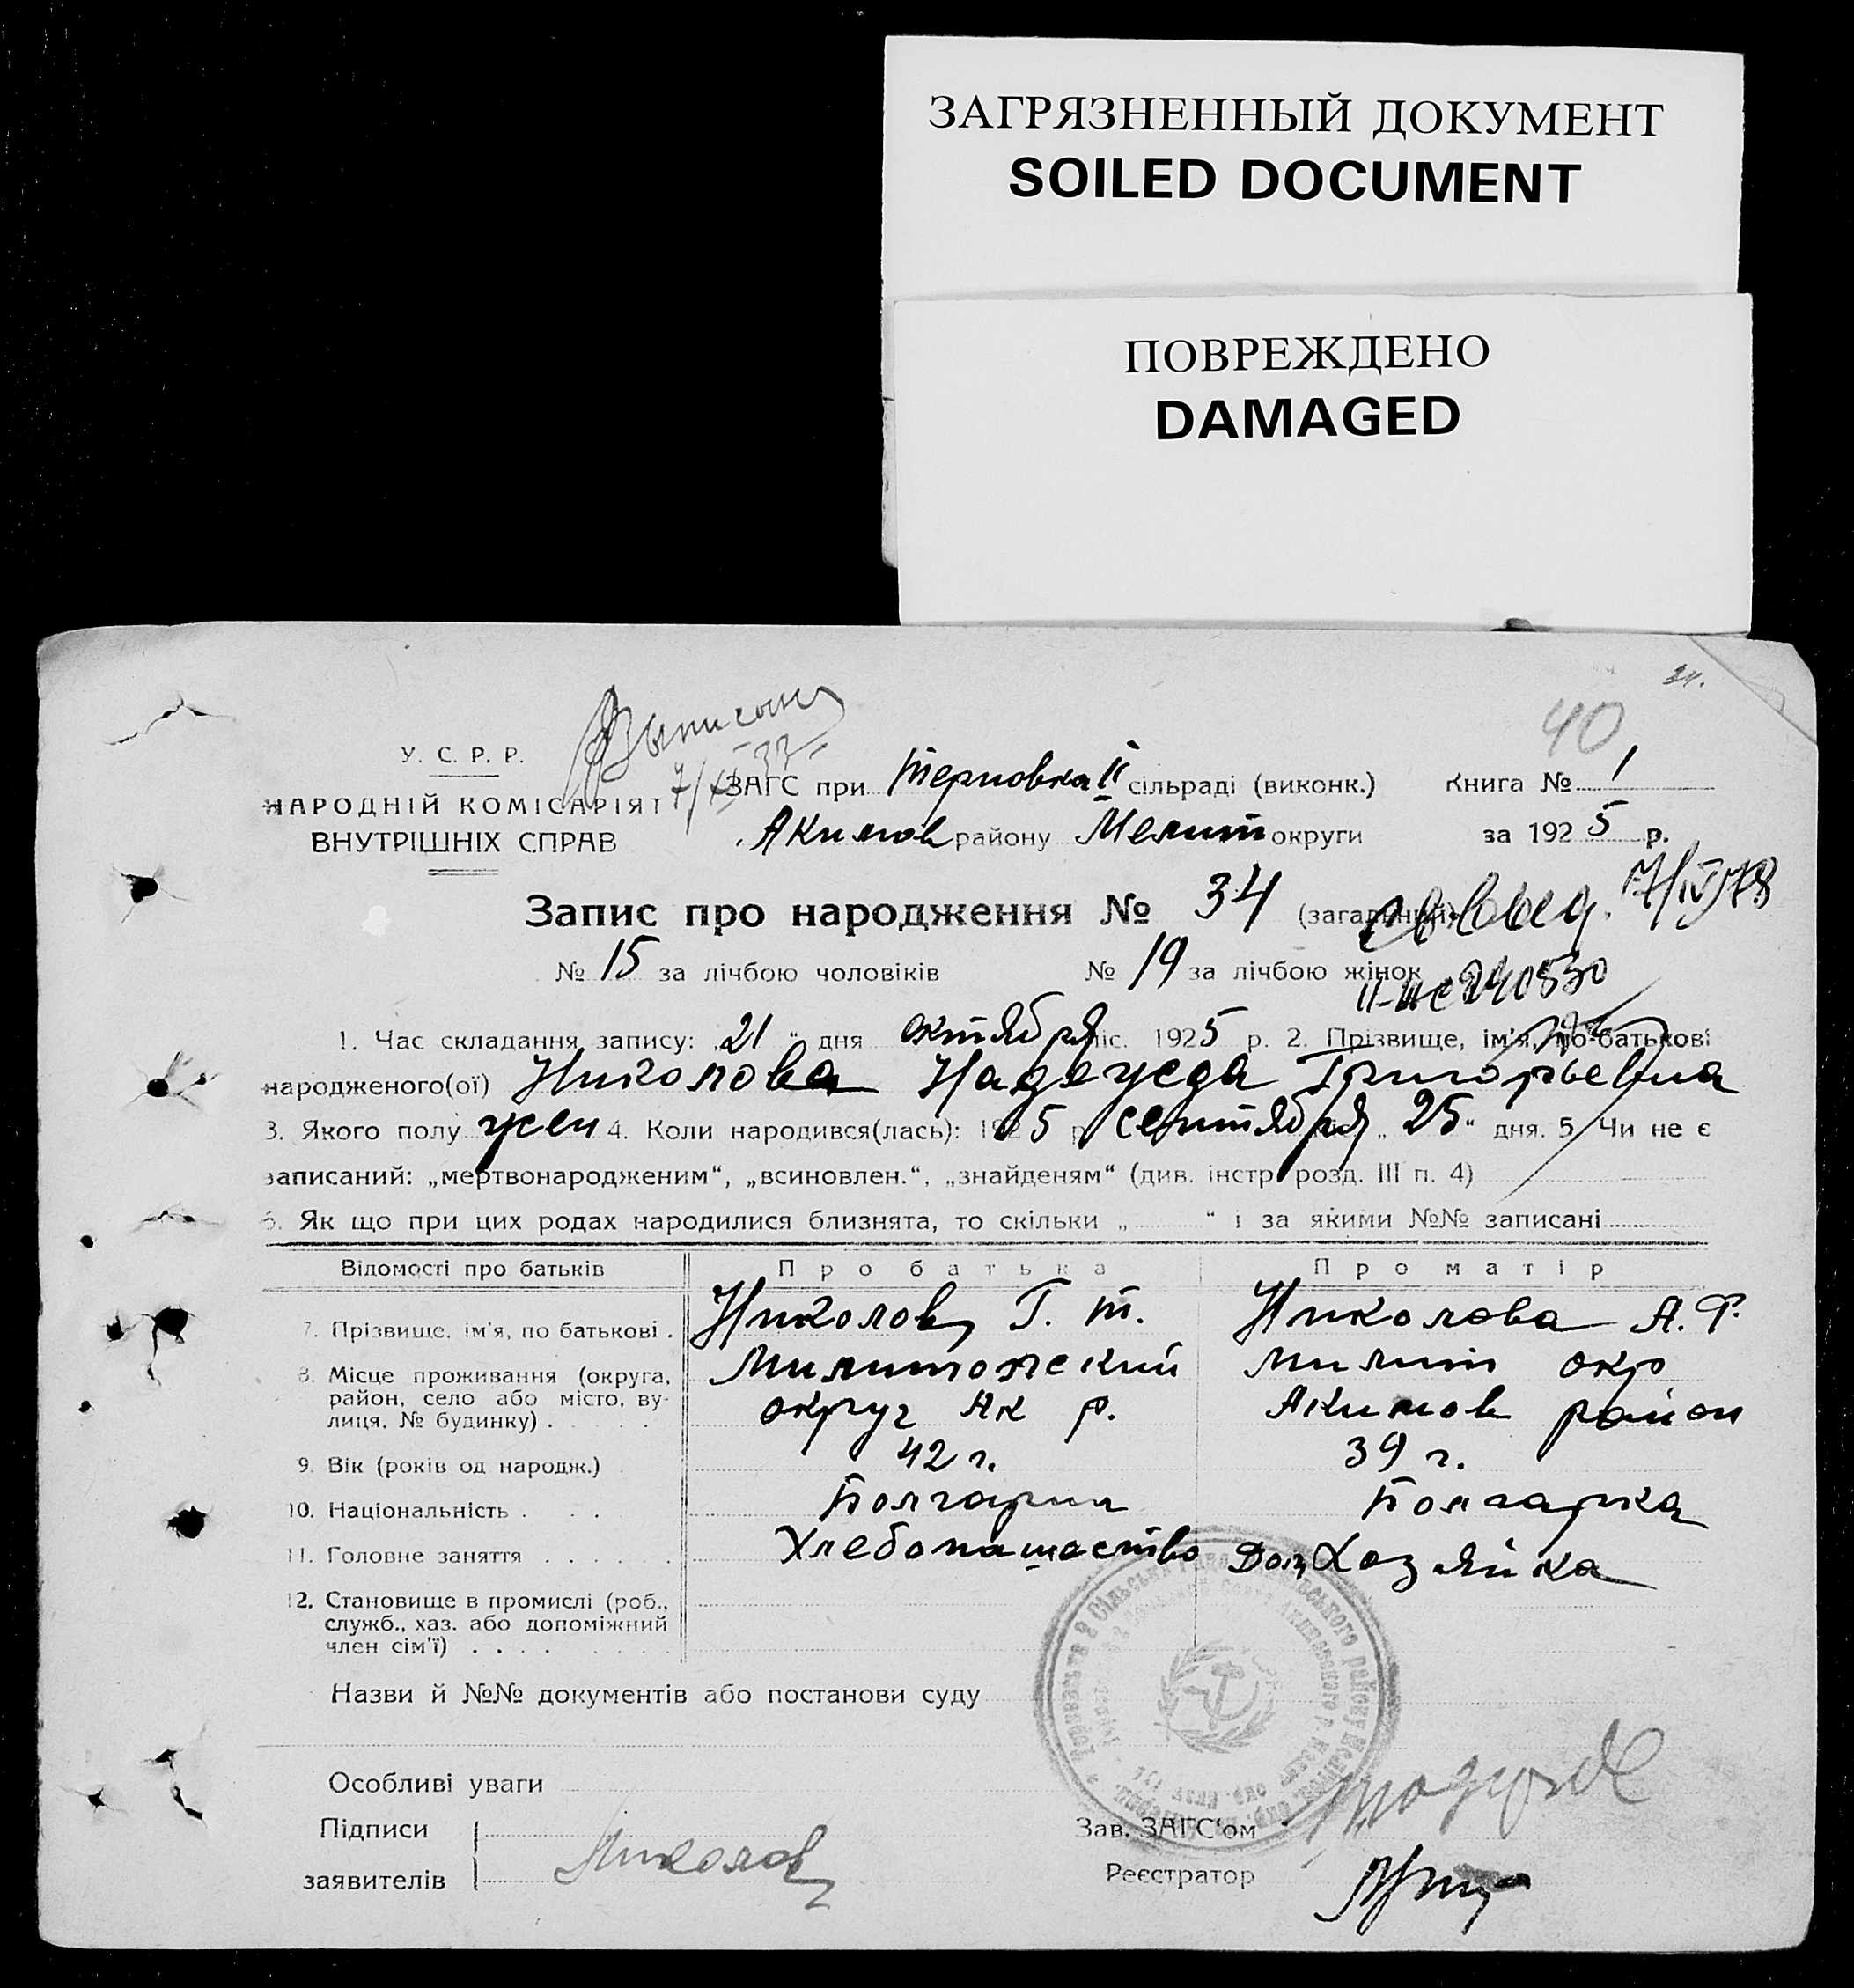 ЗАГРЯЗНЕННЫЙ ДОКУМЕНТ
SOILED DOCUMENT
ПОВРЕЖДЕНО
DAMAGED
31.
40
У. С. Р. Р.
НАРОДНІЙ КОМІСАРІЯТ
ВНУТРІШНІХ СПРАВ
ЗАГС при Терновка II сільраді (виконк.) Книга № 1
Акимов району Мелит округи за 1925 р.
7/IV 78
Запис про народження № 34 (загальний)
№ 15 за лічбою чоловіків № 19 за лічбою жінок
240530
1. Час складання запису: „21“ дня октября міс. 1925 р. 2. Прізвище, ім'я, по-батькові
народженого(ої) Николова Надежда Григорьевна
3. Якого полу жен 4. Коли народився(лась): 1925 р сентября „25“ дня. 5. Чи не є
записаний: „мертвонародженим“, „всиновлен.“, „знайденям“ (див. інстр розд. III п. 4)
6. Як що при цих родах народилися близнята, то скільки „ “ і за якими №№ записані
Відомості про батьків Про батька Про матір
7. Прізвище, ім'я, по батькові . Николов Г. Т. Николова А. Ф.
8. Місце проживання (округа, район, село або місто, вулиця, № будинку) . Милитопский округ Ак р. Милит окр Акимов район
9. Вік (років од народж.) 42 г. 39 г.
10. Національність . . . Болгарин Болгарка
11. Головне заняття . . . . . . Хлебопашество Дом Хозяйка
12. Становище в промислі (роб.,
служб., хаз. або допоміжний
член сім'ї) . . . .
Назви й №№ документів або постанови суду
Особливі уваги
Підписи
заявителів Николов
Зав. ЗАГС'ом
Реєстратор